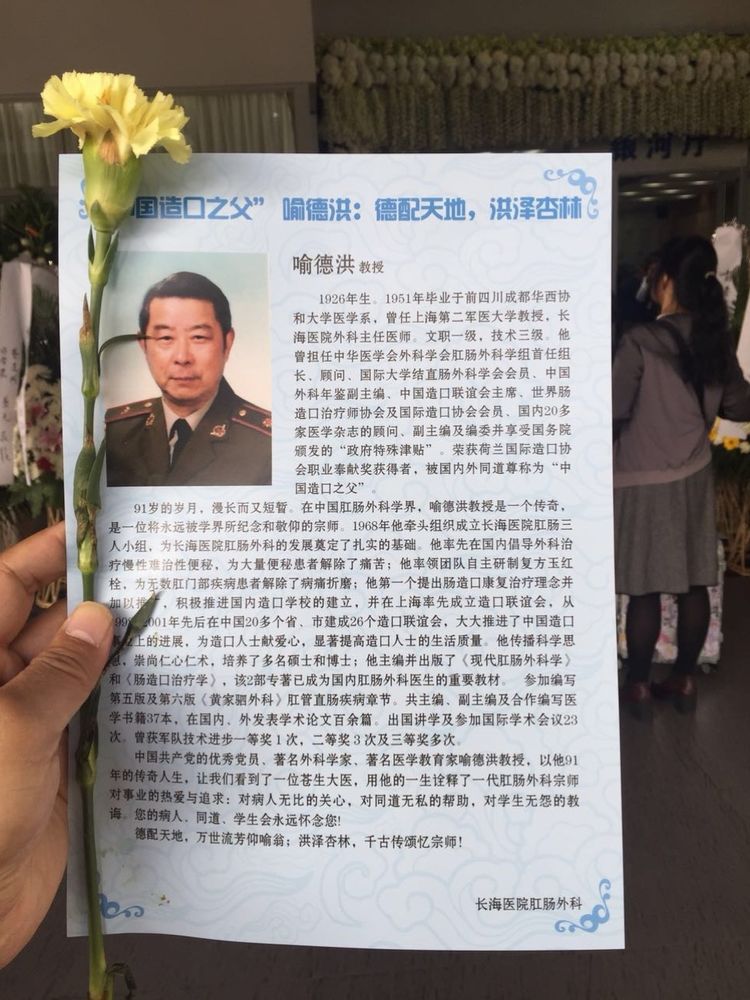 国造口之父” 喻德洪：德配天地，洪泽杏林
银河厅
喻德洪 教授
1926年生。1951年毕业于前四川成都华西协
和大学医学系，曾任上海第二军医大学教授，长
海医院外科主任医师。文职一级，技术三级。他
曾担任中华医学会外科学会肛肠外科学组首任组
长、顾问、国际大学结直肠外科学会会员、中国
外科年鉴副主编、中国造口联谊会主席、世界肠
造口治疗师协会及国际造口协会会员、国内20多
家医学杂志的顾问、副主编及编委并享受国务院
颁发的“政府特殊津贴”。荣获荷兰国际造口协
会职业奉献奖获得者，被国内外同道尊称为“中
国造口之父”。
91岁的岁月，漫长而又短暂。在中国肛肠外科学界，喻德洪教授是一个传奇，
是一位将永远被学界所纪念和敬仰的宗师。1968年他牵头组织成立长海医院肛肠三
人小组，为长海医院肛肠外科的发展奠定了扎实的基础。他率先在国内倡导外科治
疗慢性难治性便秘，为大量便秘患者解除了痛苦；他率领团队自主研制复方玉红
栓，为无数肛门部疾病患者解除了病痛折磨；他第一个提出肠造口康复治疗理念并
加以推，积极推进国内造口学校的建立，并在上海率先成立造口联谊会，从
2001年先后在中国20多个省、市建成26个造口联谊会，大大推进了中国造口
上的进展，为造口人士献爱心，显著提高造口人士的生活质量。他传播科学思
，崇尚仁心仁术，培养了多名硕士和博士；他主编并出版了《现代肛肠外科学》
和《肠造口治疗学》，该2部专著已成为国内肛肠外科医生的重要教材。 参加编写
第五版及第六版《黄家驷外科》肛管直肠疾病章节。共主编、副主编及合作编写医
学书籍37本，在国内、外发表学术论文百余篇。出国讲学及参加国际学术会议23
次。曾获军队技术进步一等奖1次，二等奖3次及三等奖多次。
中国共产党的优秀党员、著名外科学家、著名医学教育家喻德洪教授，以他91
年的传奇人生，让我们看到了一位苍生大医，用他的一生诠释了一代肛肠外科宗师
对事业的热爱与追求：对病人无比的关心，对同道无私的帮助，对学生无怨的教
诲。您的病人、同道、学生会永远怀念您！
德配天地，万世流芳仰喻翁；洪泽杏林，千古传颂忆宗师！
长海医院肛肠外科